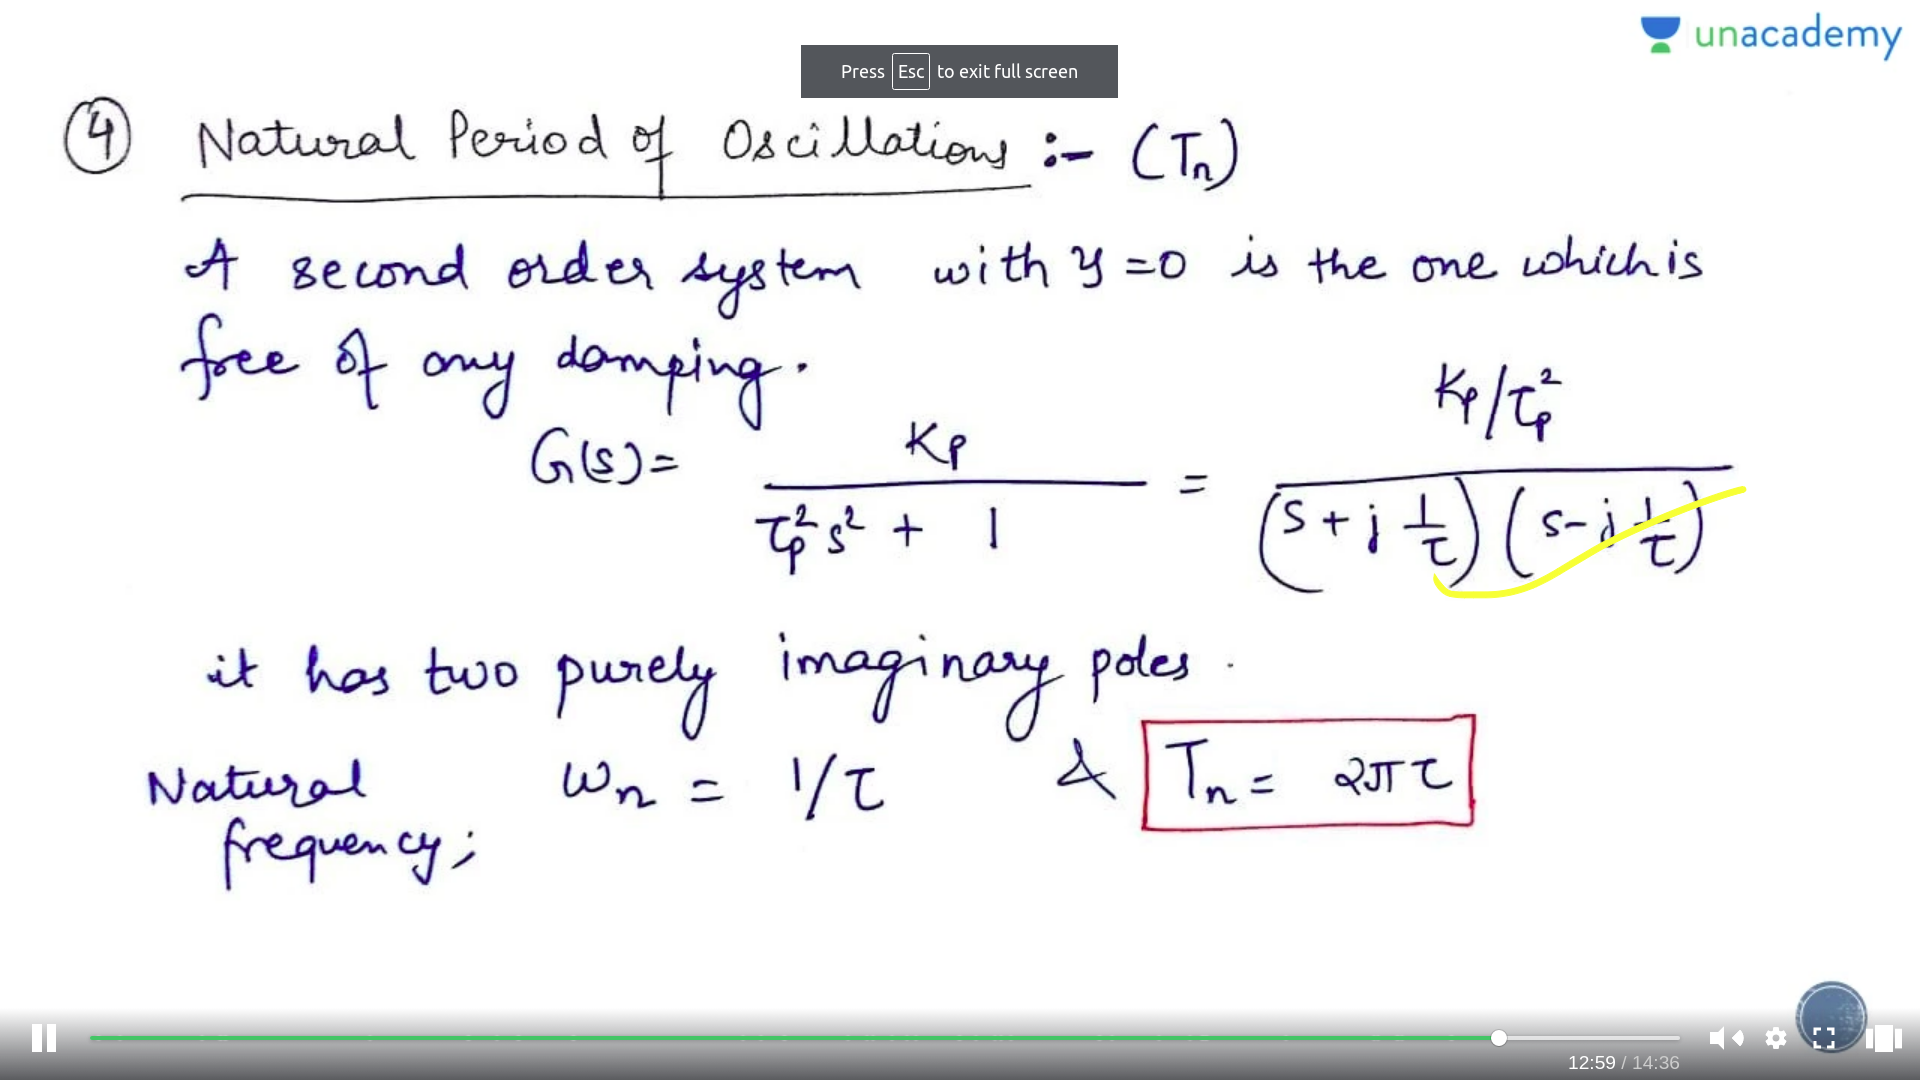 unacademy
Press Esc to exit full screen
④ Natural Period of Oscillations :- (Tn)
A second order system with ξ=0 is the one which is
free of any damping.
G(s)= Kp / (τp² s² + 1) = (Kp/τp²) / ((s+j 1/τ)(s-j 1/τ))
it has two purely imaginary poles.
Natural frequency; ωn = 1/τ & Tn = 2πτ
12:59 / 14:36